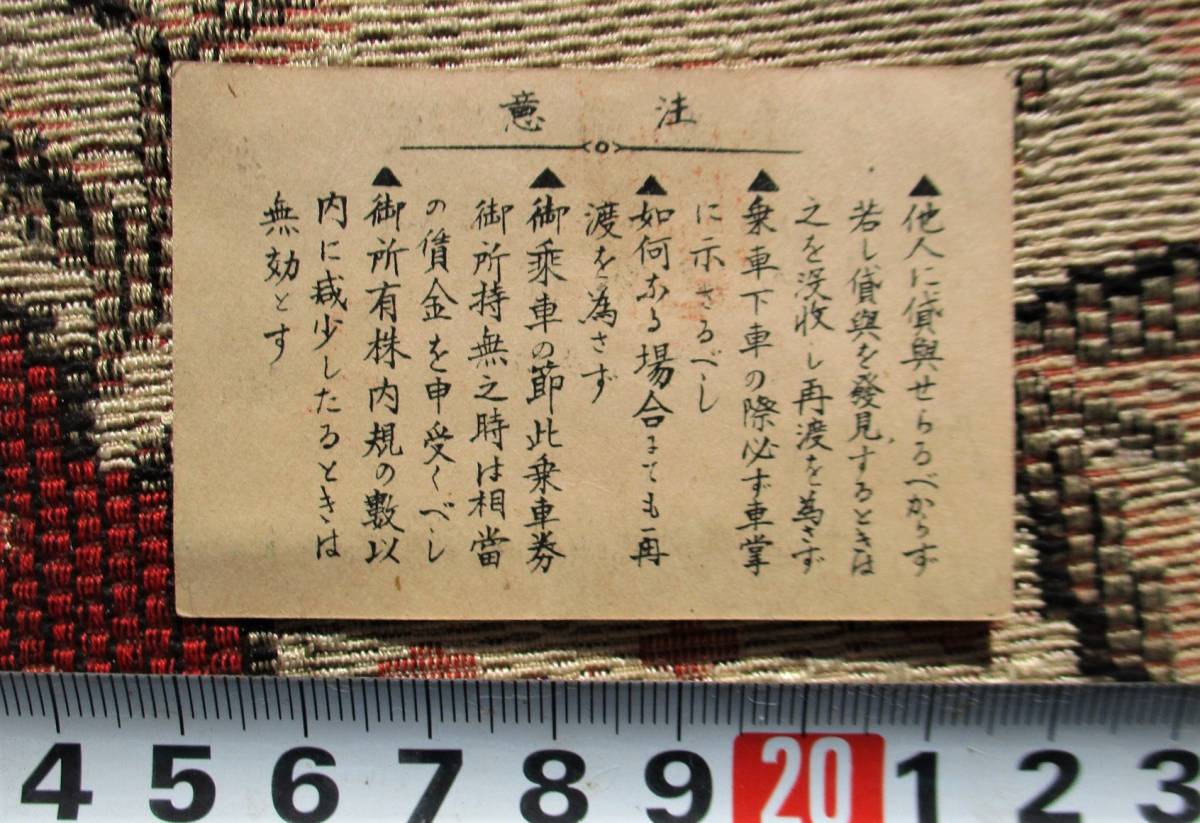 注意
▲他人に貸與せらるべからず
若し貸與を發見するときは
之を没收し再渡を為さず
▲乗車下車の際必ず車掌
に示さるべし
▲如何なる場合にても再
渡を為さず
▲御乗車の節此乗車券
御所持無之時は相當
の賃金を申受くべし
▲御所有株内規の數以
内に減少したるときは
無効とす
4 5 6 7 8 9 20 1 2 3